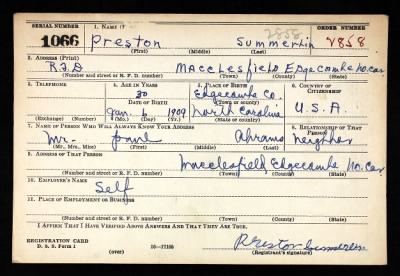 SERIAL NUMBER 1. NAME (Print) ORDER NUMBER
1066 Preston Summerlin 2858 2858
(First) (Middle) (Last)
2. ADDRESS (Print)
R.F.D Macclesfield Edgecombe No. Car.
(Number and street or R. F. D. number) (Town) (County) (State)
3. TELEPHONE 4. AGE IN YEARS 5. PLACE OF BIRTH 6. COUNTRY OF CITIZENSHIP
Edgecombe Co.
DATE OF BIRTH (Town or county)
Jan. 6 1909 North Carolina U.S.A.
(Exchange) (Number) (Mo.) (Day) (Yr.) (State or country)
7. NAME OF PERSON WHO WILL ALWAYS KNOW YOUR ADDRESS 8. RELATIONSHIP OF THAT PERSON
Mr. Abrams Neighbor
(Mr., Mrs., Miss) (First) (Middle) (Last)
9. ADDRESS OF THAT PERSON
Macclesfield Edgecombe No. Car.
(Number and street or R. F. D. number) (Town) (County) (State)
10. EMPLOYER'S NAME
Self
11. PLACE OF EMPLOYMENT OR BUSINESS
(Number and street or R. F. D. number) (Town) (County) (State)
I AFFIRM THAT I HAVE VERIFIED ABOVE ANSWERS AND THAT THEY ARE TRUE.
REGISTRATION CARD
D. S. S. Form 1 (over) Preston Summerlin
(Registrant's signature)